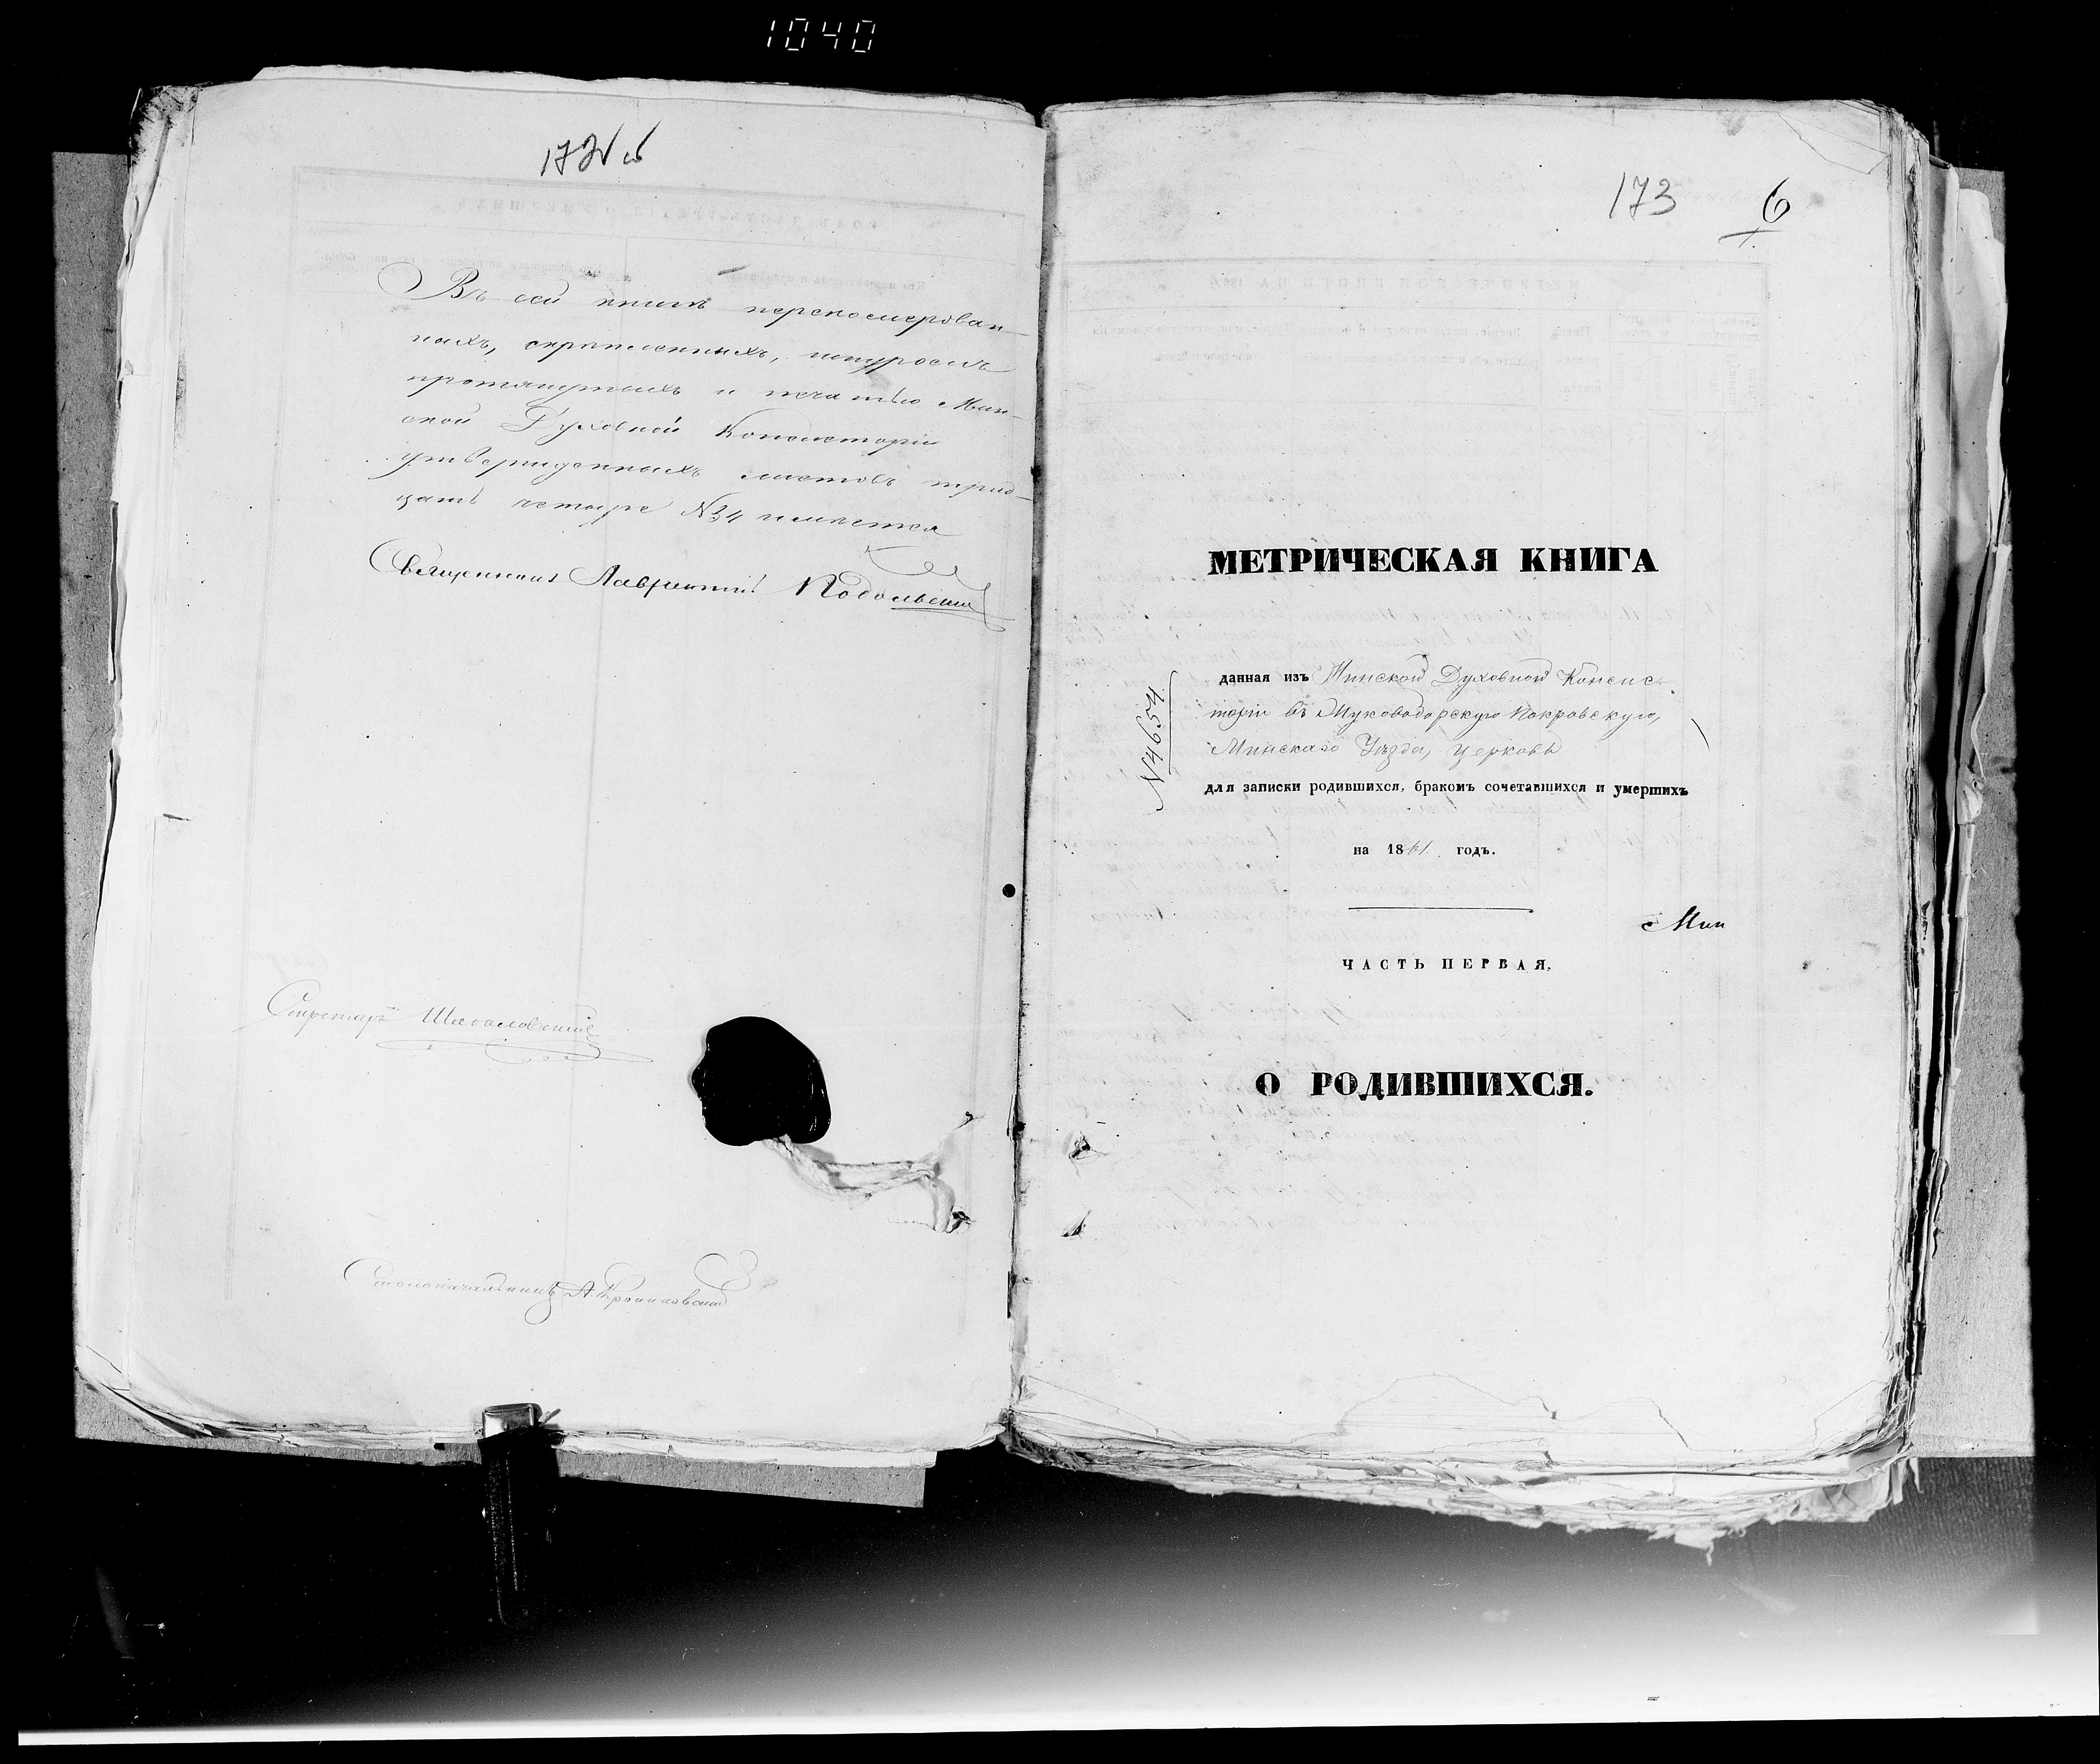 1040
172 об
Въ сей книгѣ переномерован-
ныхъ, скрѣпленныхъ, шнуромъ
протянутыхъ и печатью Мин-
ской Духовной Консисторіи
утвержденныхъ листовъ трид-
цать четыре №34 имѣется
Священникъ Лаврентій Подольскій
Секретарь
Столоначальникъ А.
173 6
МЕТРИЧЕСКАЯ КНИГА
N4654
данная изъ Минской Духовной Консис-
торіи въ Муководорскую Покровскую,
Минскаго Уѣзда, церковь
для записки родившихся, бракомъ сочетавшихся и умершихъ
на 1861 годъ.
Мин
ЧАСТЬ ПЕРВАЯ,
О РОДИВШИХСЯ.